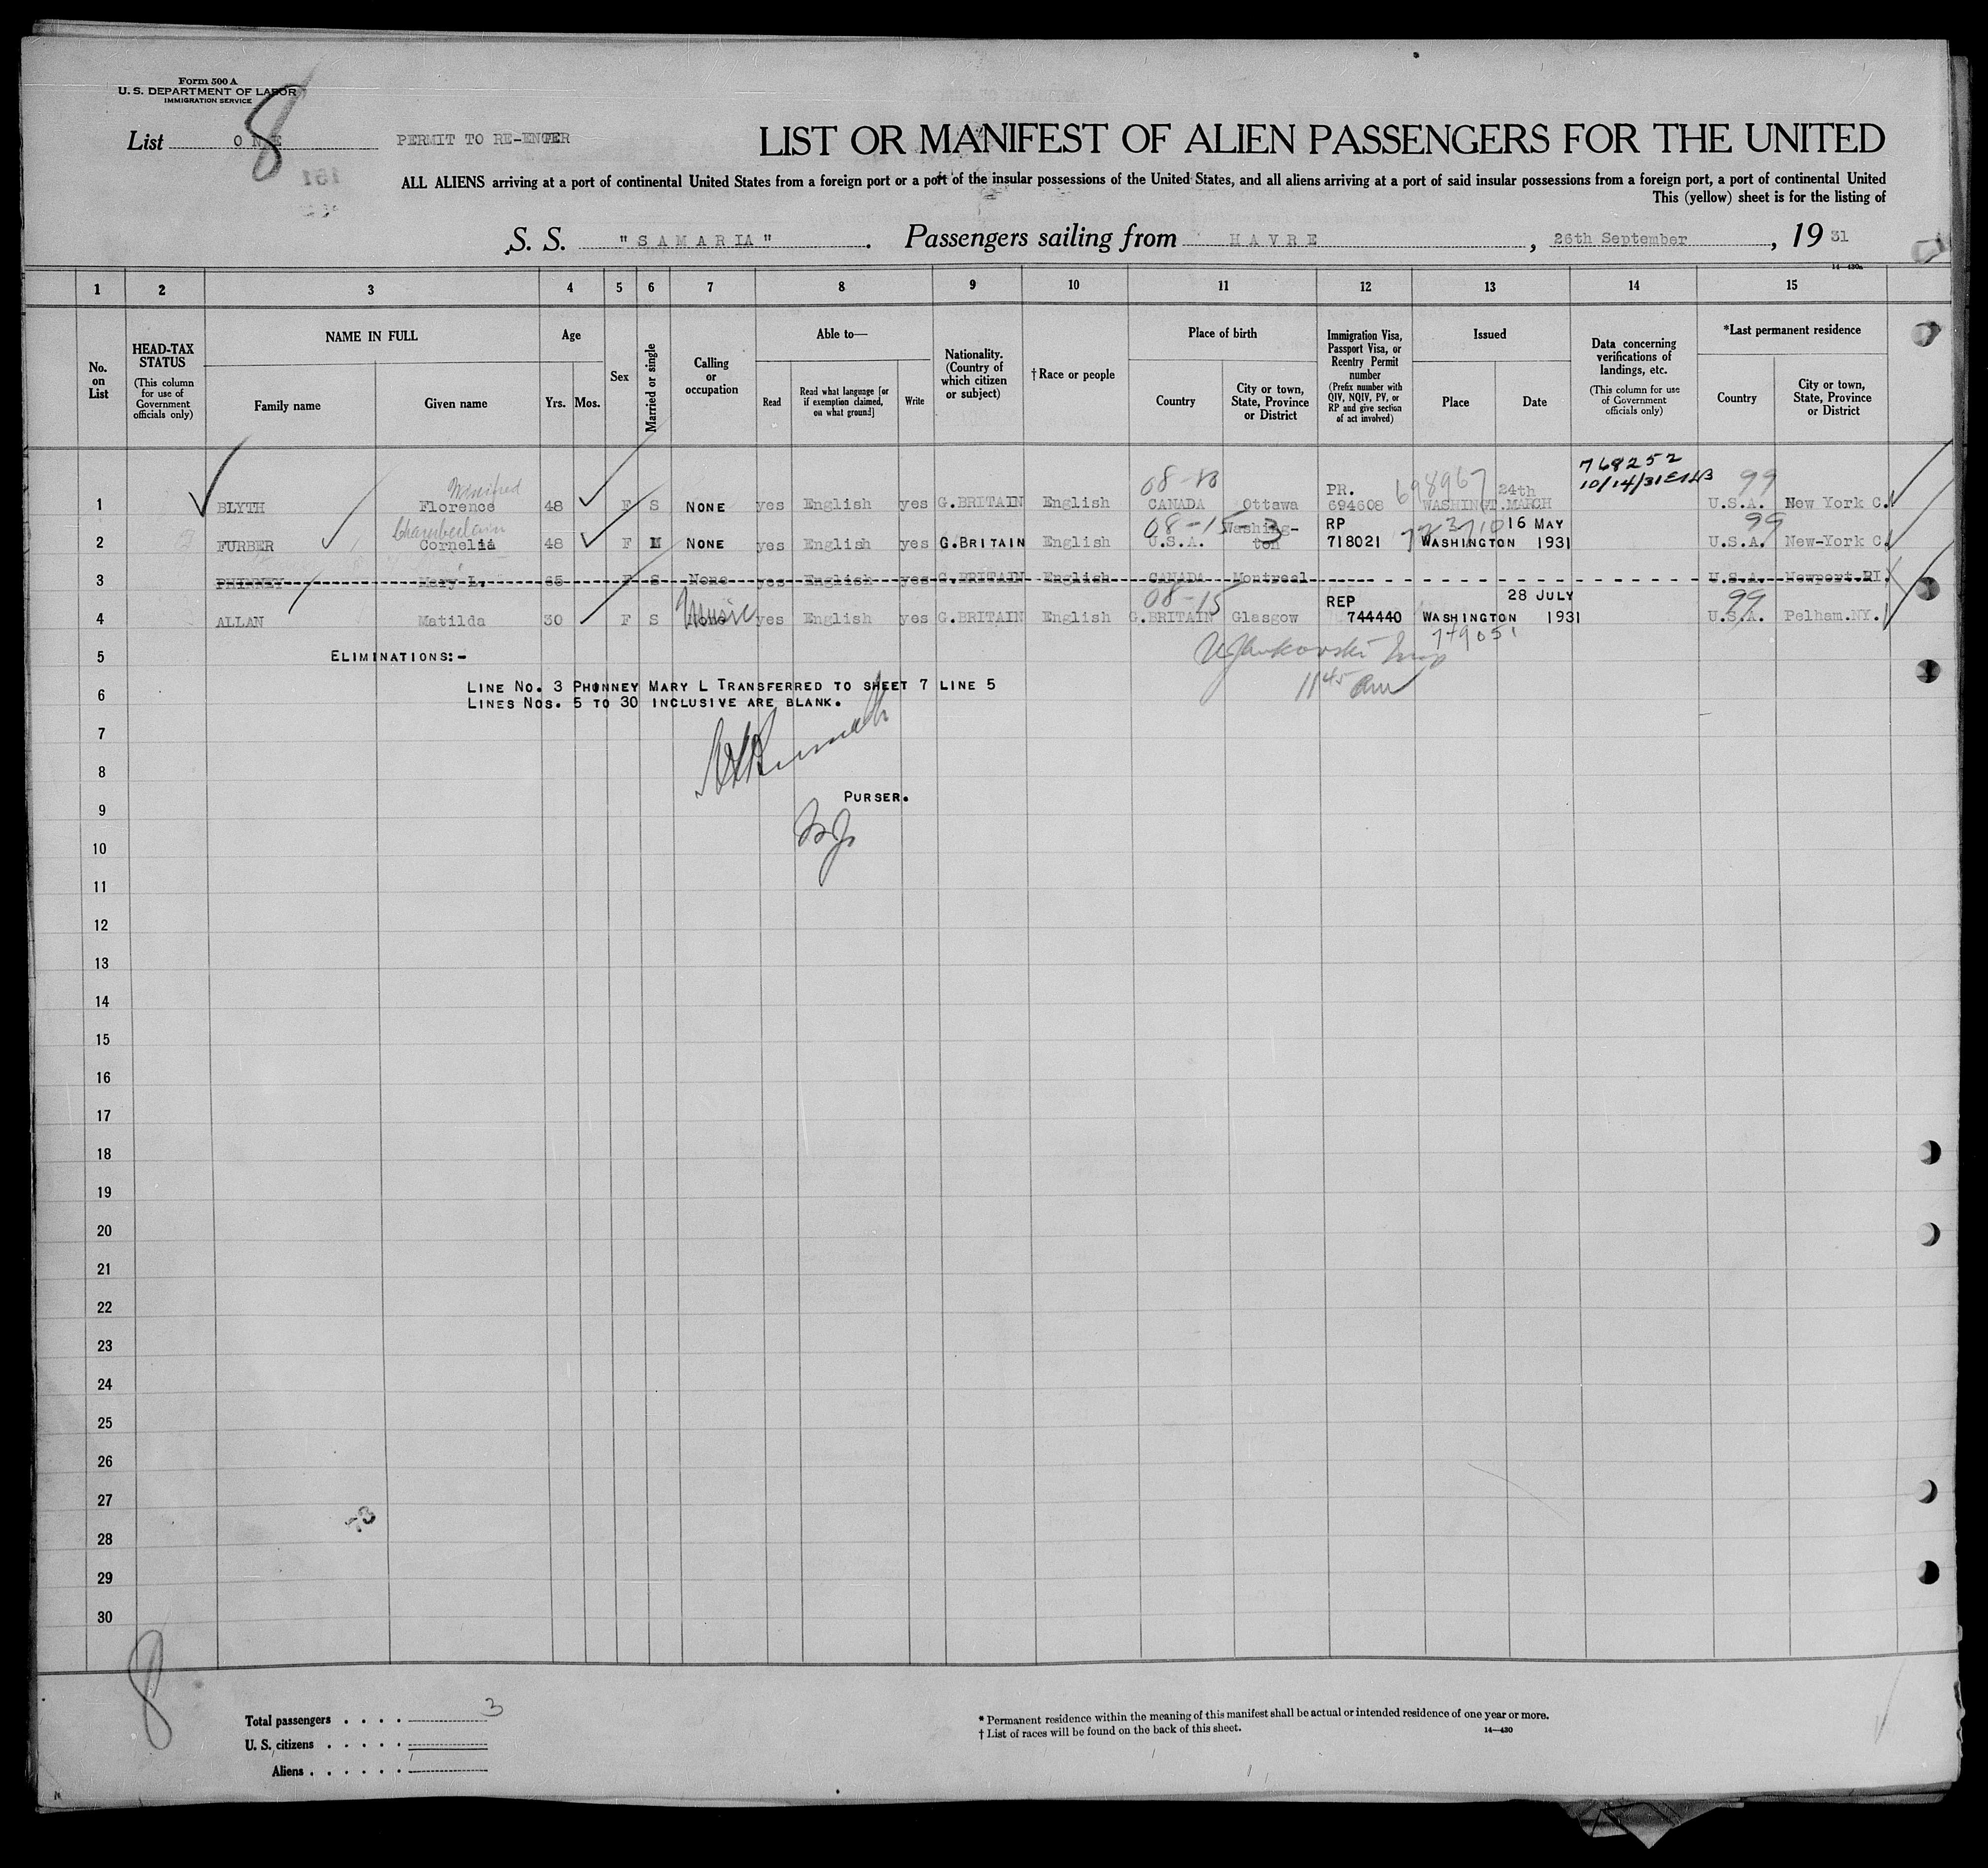 Form 500 A
U. S. DEPARTMENT OF LABOR
IMMIGRATION SERVICE
8
List ONE PERMIT TO RE-ENTER
LIST OR MANIFEST OF ALIEN PASSENGERS FOR THE UNITED
151
ALL ALIENS arriving at a port of continental United States from a foreign port or a port of the insular possessions of the United States, and all aliens arriving at a port of said insular possessions from a foreign port, a port of continental United
This (yellow) sheet is for the listing of
S. S. "SAMARIA". Passengers sailing from HAVRE, 26th September, 1931
14—430a
1 2 3 4 5 6 7 8 9 10 11 12 13 14 15
No. on List
HEAD-TAX STATUS (This column for use of Government officials only)
NAME IN FULL
Family name
Given name
Age
Yrs. Mos.
Sex
Married or single
Calling or occupation
Able to—
Read
Read what language [or if exemption claimed, on what ground]
Write
Nationality. (Country of which citizen or subject)
†Race or people
Place of birth
Country
City or town, State, Province or District
Immigration Visa, Passport Visa, or Reentry Permit number (Prefix number with QIV, NQIV, PV, or RP and give section of act involved)
Issued
Place
Date
Data concerning verifications of landings, etc. (This column for use of Government officials only)
*Last permanent residence
Country
City or town, State, Province or District
Winifred 08-10 PR. 698967 24th 768252 10/14/31 99
1 BLYTH Florence 48 F S NONE yes English yes G.BRITAIN English CANADA Ottawa 694608 WASHINGT. MARCH U.S.A. New York C.
Chamberlain 08-15-3 Washing- RP 723710 16 MAY 99
2 FURBER Cornelia 48 F M NONE yes English yes G.BRITAIN English U.S.A. ton 718021 WASHINGTON 1931 U.S.A. New-York C.
3 PHINNEY Mary L. 65 F S None yes English yes G.BRITAIN English CANADA Montreal U.S.A. Newport.RI.
Music 08-15 REP 28 JULY 99
4 ALLAN Matilda 30 F S None yes English yes G.BRITAIN English G.BRITAIN Glasgow 744440 WASHINGTON 1931 U.S.A. Pelham.NY.
749051
5 ELIMINATIONS:-
1145 am
6 LINE NO. 3 PHINNEY MARY L TRANSFERRED TO SHEET 7 LINE 5
LINES NOS. 5 TO 30 INCLUSIVE ARE BLANK.
7
8
PURSER.
9
10
11
12
13
14
15
16
17
18
19
20
21
22
23
24
25
26
27
28
29
30
8
Total passengers . . . . 3
U. S. citizens . . . . .
Aliens . . . . . .
* Permanent residence within the meaning of this manifest shall be actual or intended residence of one year or more.
† List of races will be found on the back of this sheet.
14—430